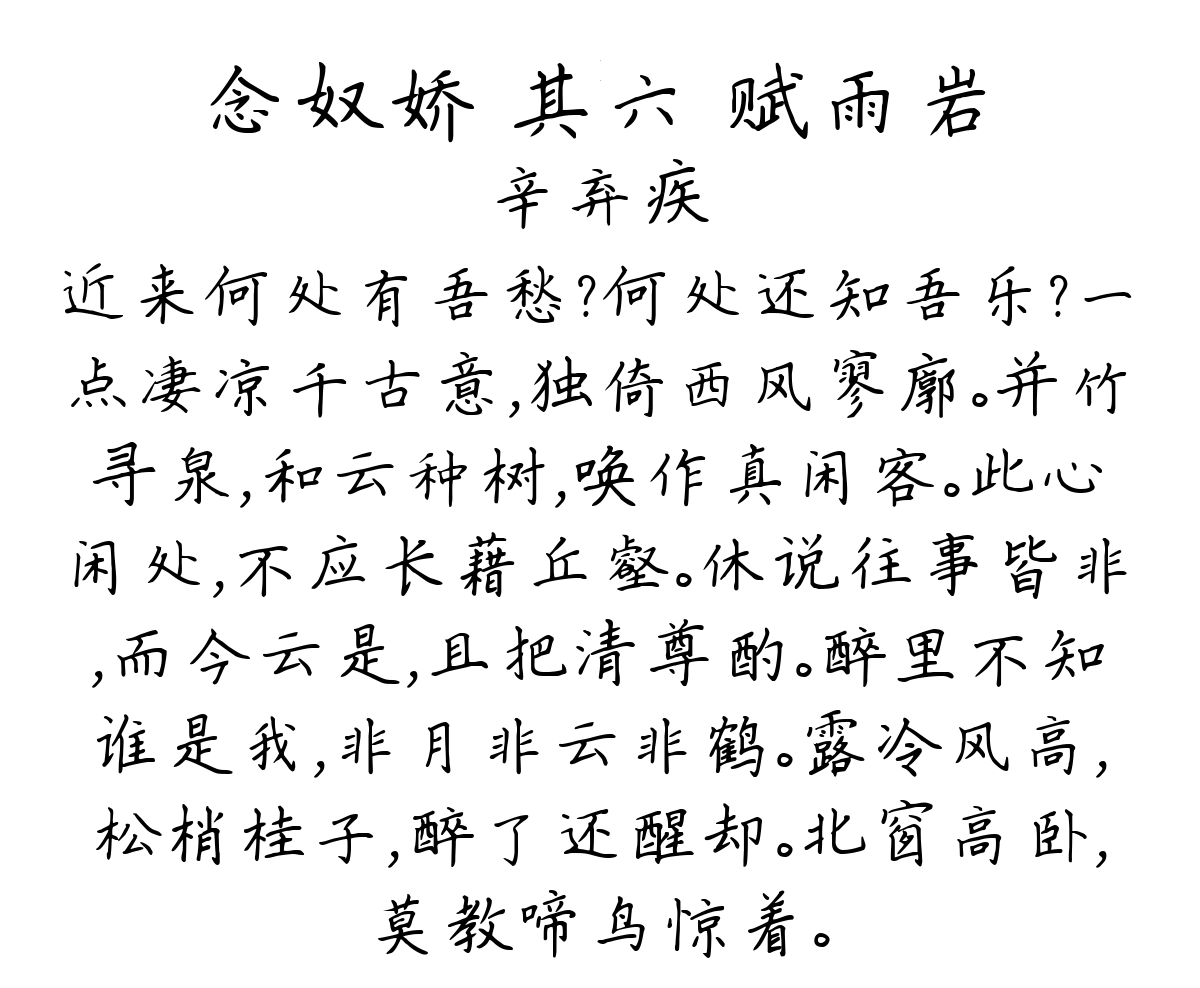 念奴娇 其六 赋雨岩
辛弃疾
近来何处有吾愁?何处还知吾乐?一
点凄凉千古意,独倚西风寥廓。并竹
寻泉,和云种树,唤作真闲客。此心
闲处,不应长藉丘壑。休说往事皆非
,而今云是,且把清尊酌。醉里不知
谁是我,非月非云非鹤。露冷风高,
松梢桂子,醉了还醒却。北窗高卧,
莫教啼鸟惊着。